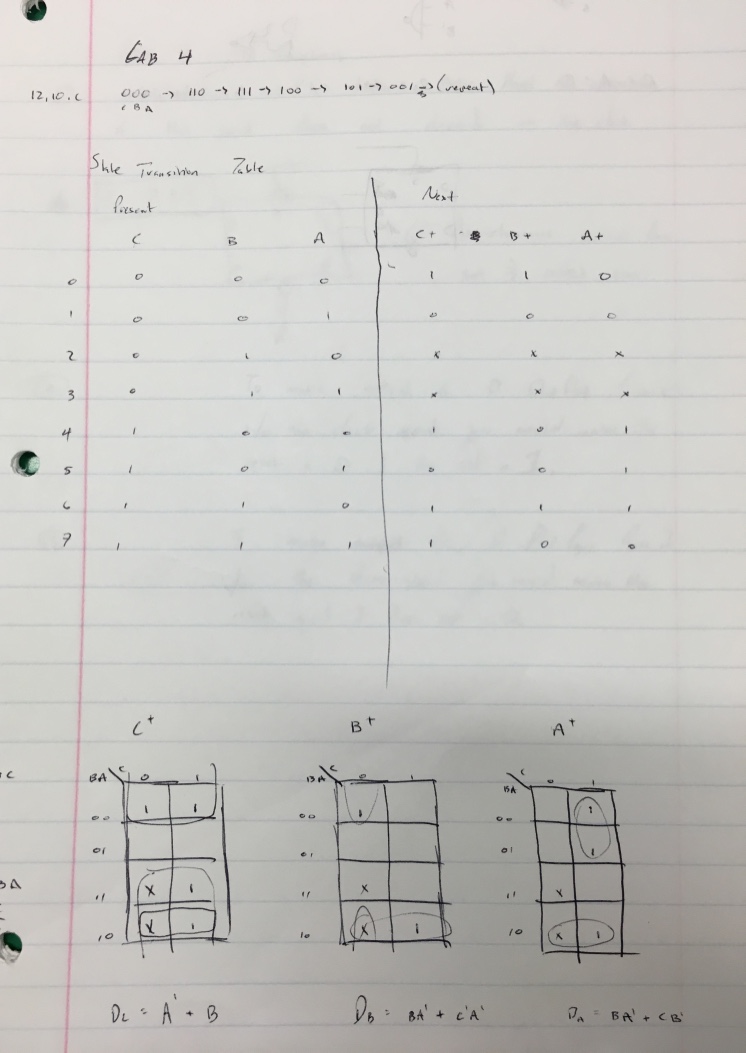 LAB 4
12.10.c 000 → 110 → 111 → 100 → 101 → 001 → (repeat)
C B A
State Transition Table
Present Next
C B A C+ B+ A+
0 0 0 0 1 1 0
1 0 0 1 0 0 0
2 0 1 0 x x x
3 0 1 1 x x x
4 1 0 0 1 0 1
5 1 0 1 0 0 1
6 1 1 0 1 1 1
7 1 1 1 1 0 0
C+ B+ A+
BA C 0 1 BA C 0 1 BA C 0 1
00 1 1 00 1 00 1
01 01 01 1
11 X 1 11 X 11 X
10 X 1 10 X 1 10 X 1
DC = A' + B DB = BA' + C'A' DA = BA' + CB'